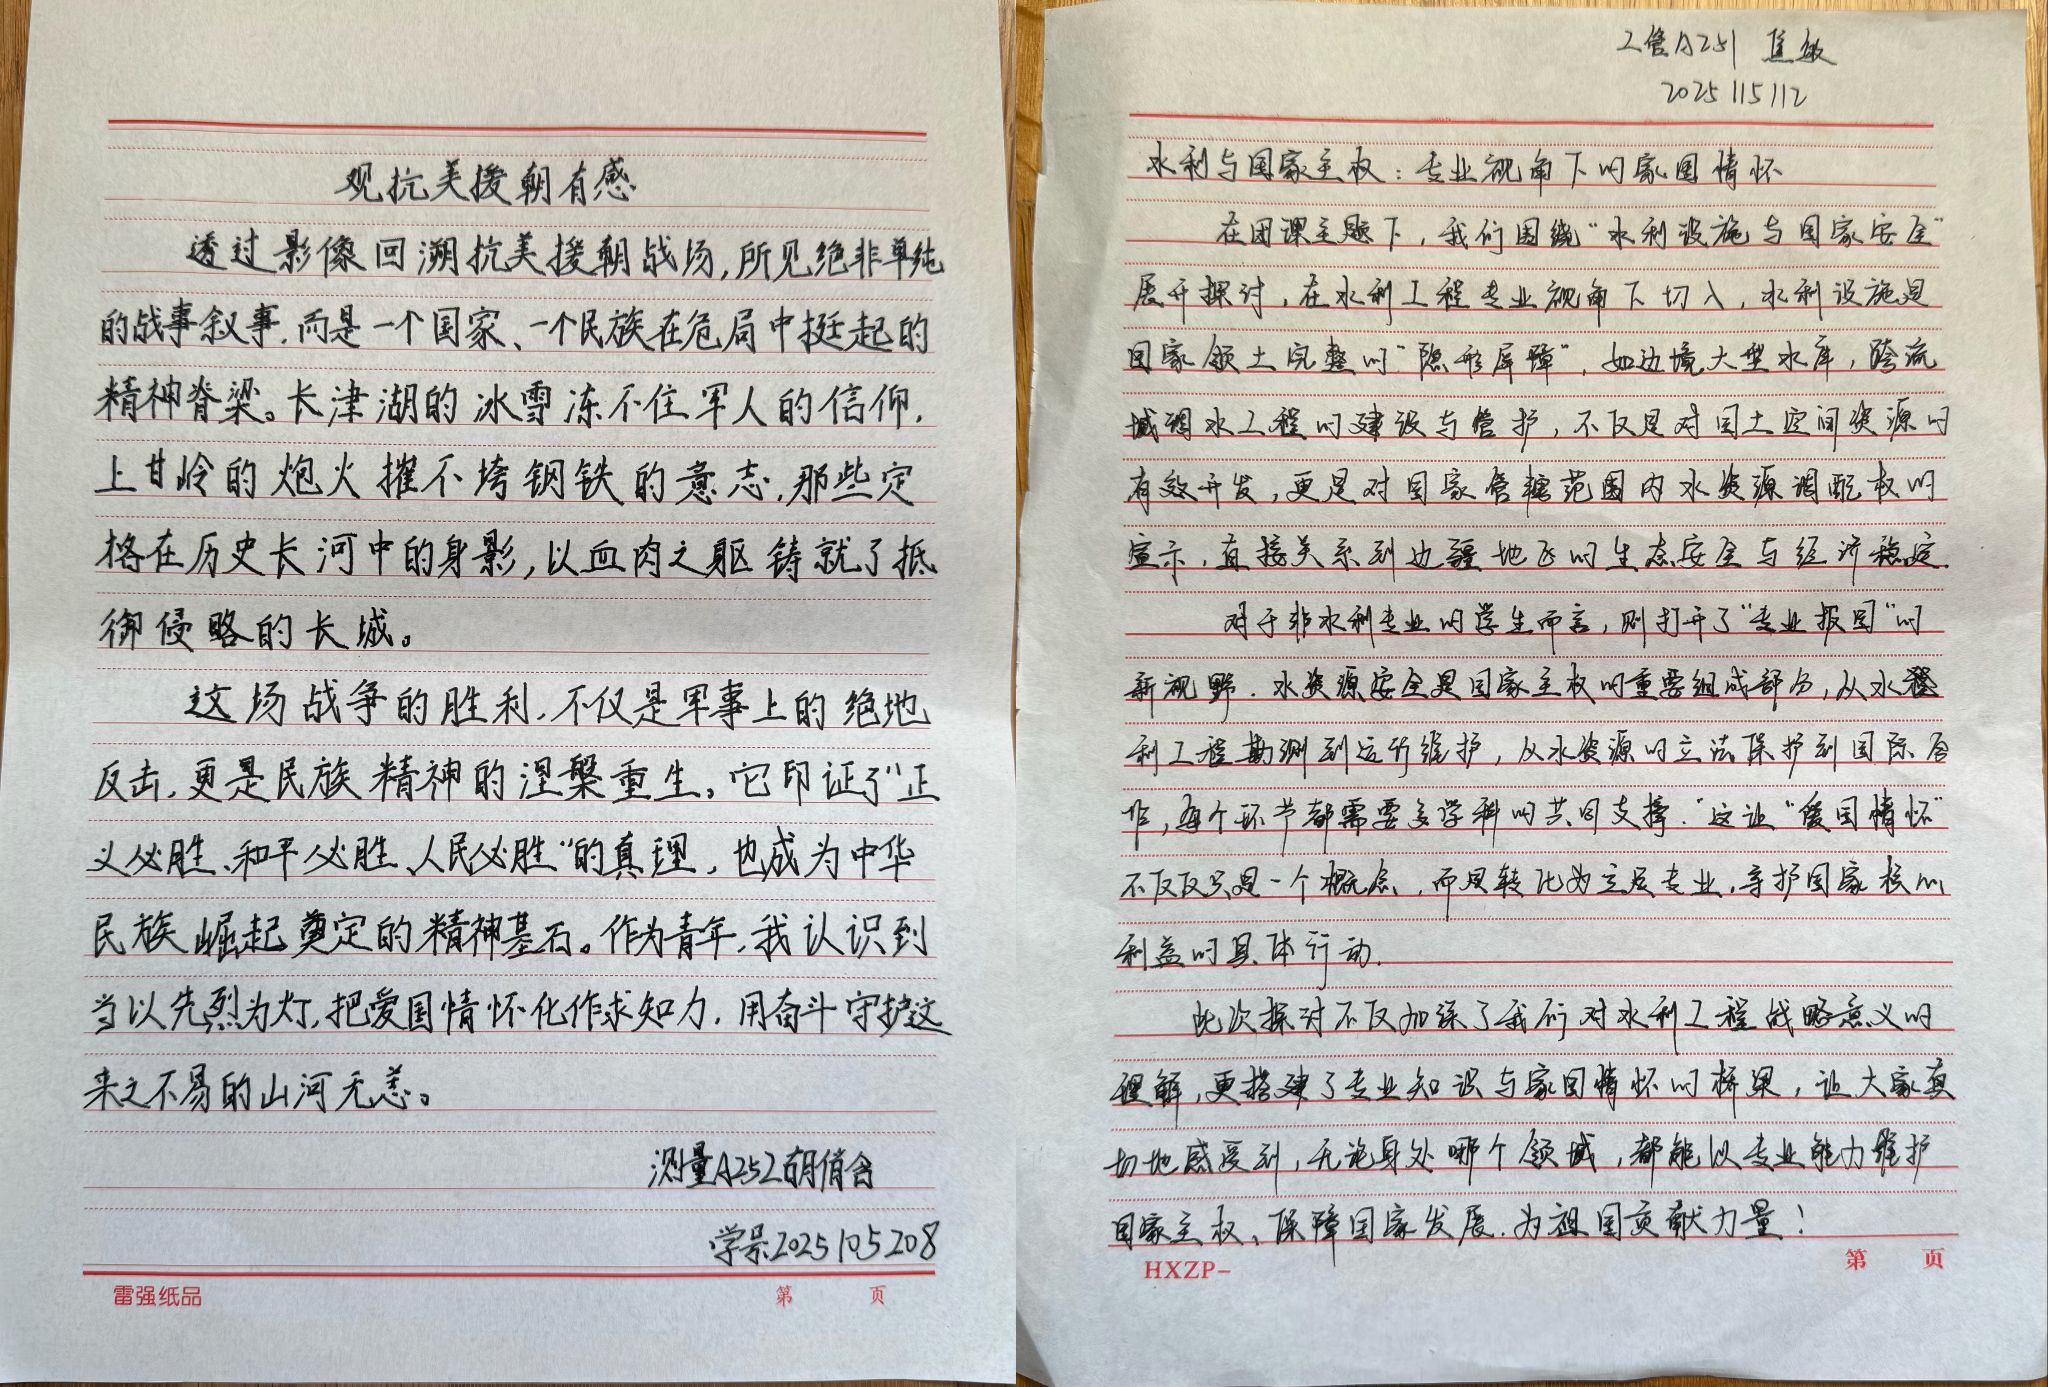 观抗美援朝有感
透过影像回溯抗美援朝战场,所见绝非单纯
的战事叙事,而是一个国家、一个民族在危局中挺起的
精神脊梁。长津湖的冰雪冻不住军人的信仰,
上甘岭的炮火摧不垮钢铁的意志,那些定
格在历史长河中的身影,以血肉之躯铸就了抵
御侵略的长城。
这场战争的胜利,不仅是军事上的绝地
反击,更是民族精神的涅槃重生。它印证了“正
义必胜、和平必胜、人民必胜”的真理,也成为中华
民族崛起奠定的精神基石。作为青年,我认识到
当以先烈为灯,把爱国情怀化作求知力,用奋斗守护这
来之不易的山河无恙。
测量A252胡俏含
学号2025105208
雷强纸品
第 页
工管A251 焦敏
2025115112
水利与国家主权:专业视角下的家国情怀
在团课主题下,我们围绕“水利设施与国家安全”
展开探讨,在水利工程专业视角下切入,水利设施是
国家领土完整的“隐形屏障”,如边境大型水库,跨流
域调水工程的建设与管护,不仅是对国土空间资源的
有效开发,更是对国家管辖范围内水资源调配权的
宣示,直接关系到边疆地区的生态安全与经济稳定.
对于非水利专业的学生而言,则打开了“专业报国”的
新视野.水资源安全是国家主权的重要组成部分,从水
利工程勘测到运行维护,从水资源的立法保护到国际合
作,每个环节都需要多学科的共同支撑.“这让“爱国情怀”
不仅仅只是一个概念,而是转化为立足专业,守护国家核心
利益的具体行动.
此次探讨不仅加深了我们对水利工程战略意义的
理解,更搭建了专业知识与家国情怀的桥梁,让大家真
切地感受到,无论身处哪个领域,都能以专业能力维护
国家主权、保障国家发展.为祖国贡献力量!
HXZP-
第 页